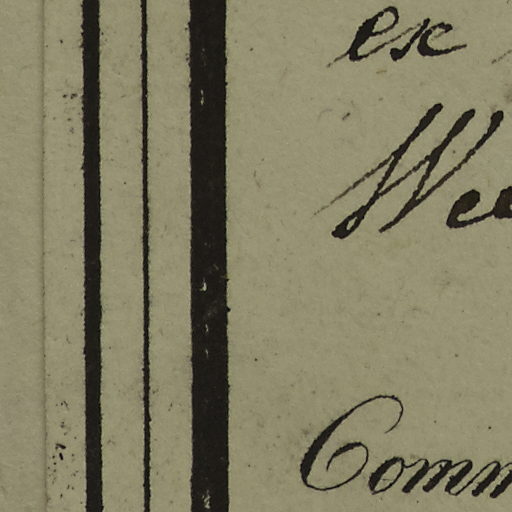 ex
Wee
Comm